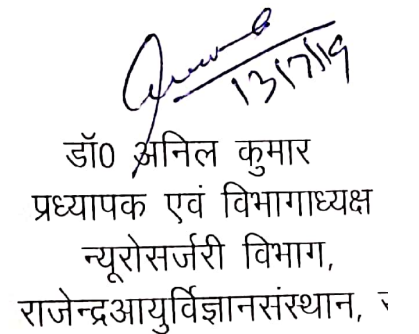 13/7/19
डॉ0 अनिल कुमार
प्रध्यापक एवं विभागाध्यक्ष
न्यूरोसर्जरी विभाग,
राजेन्द्रआयुर्विज्ञानसंस्थान,